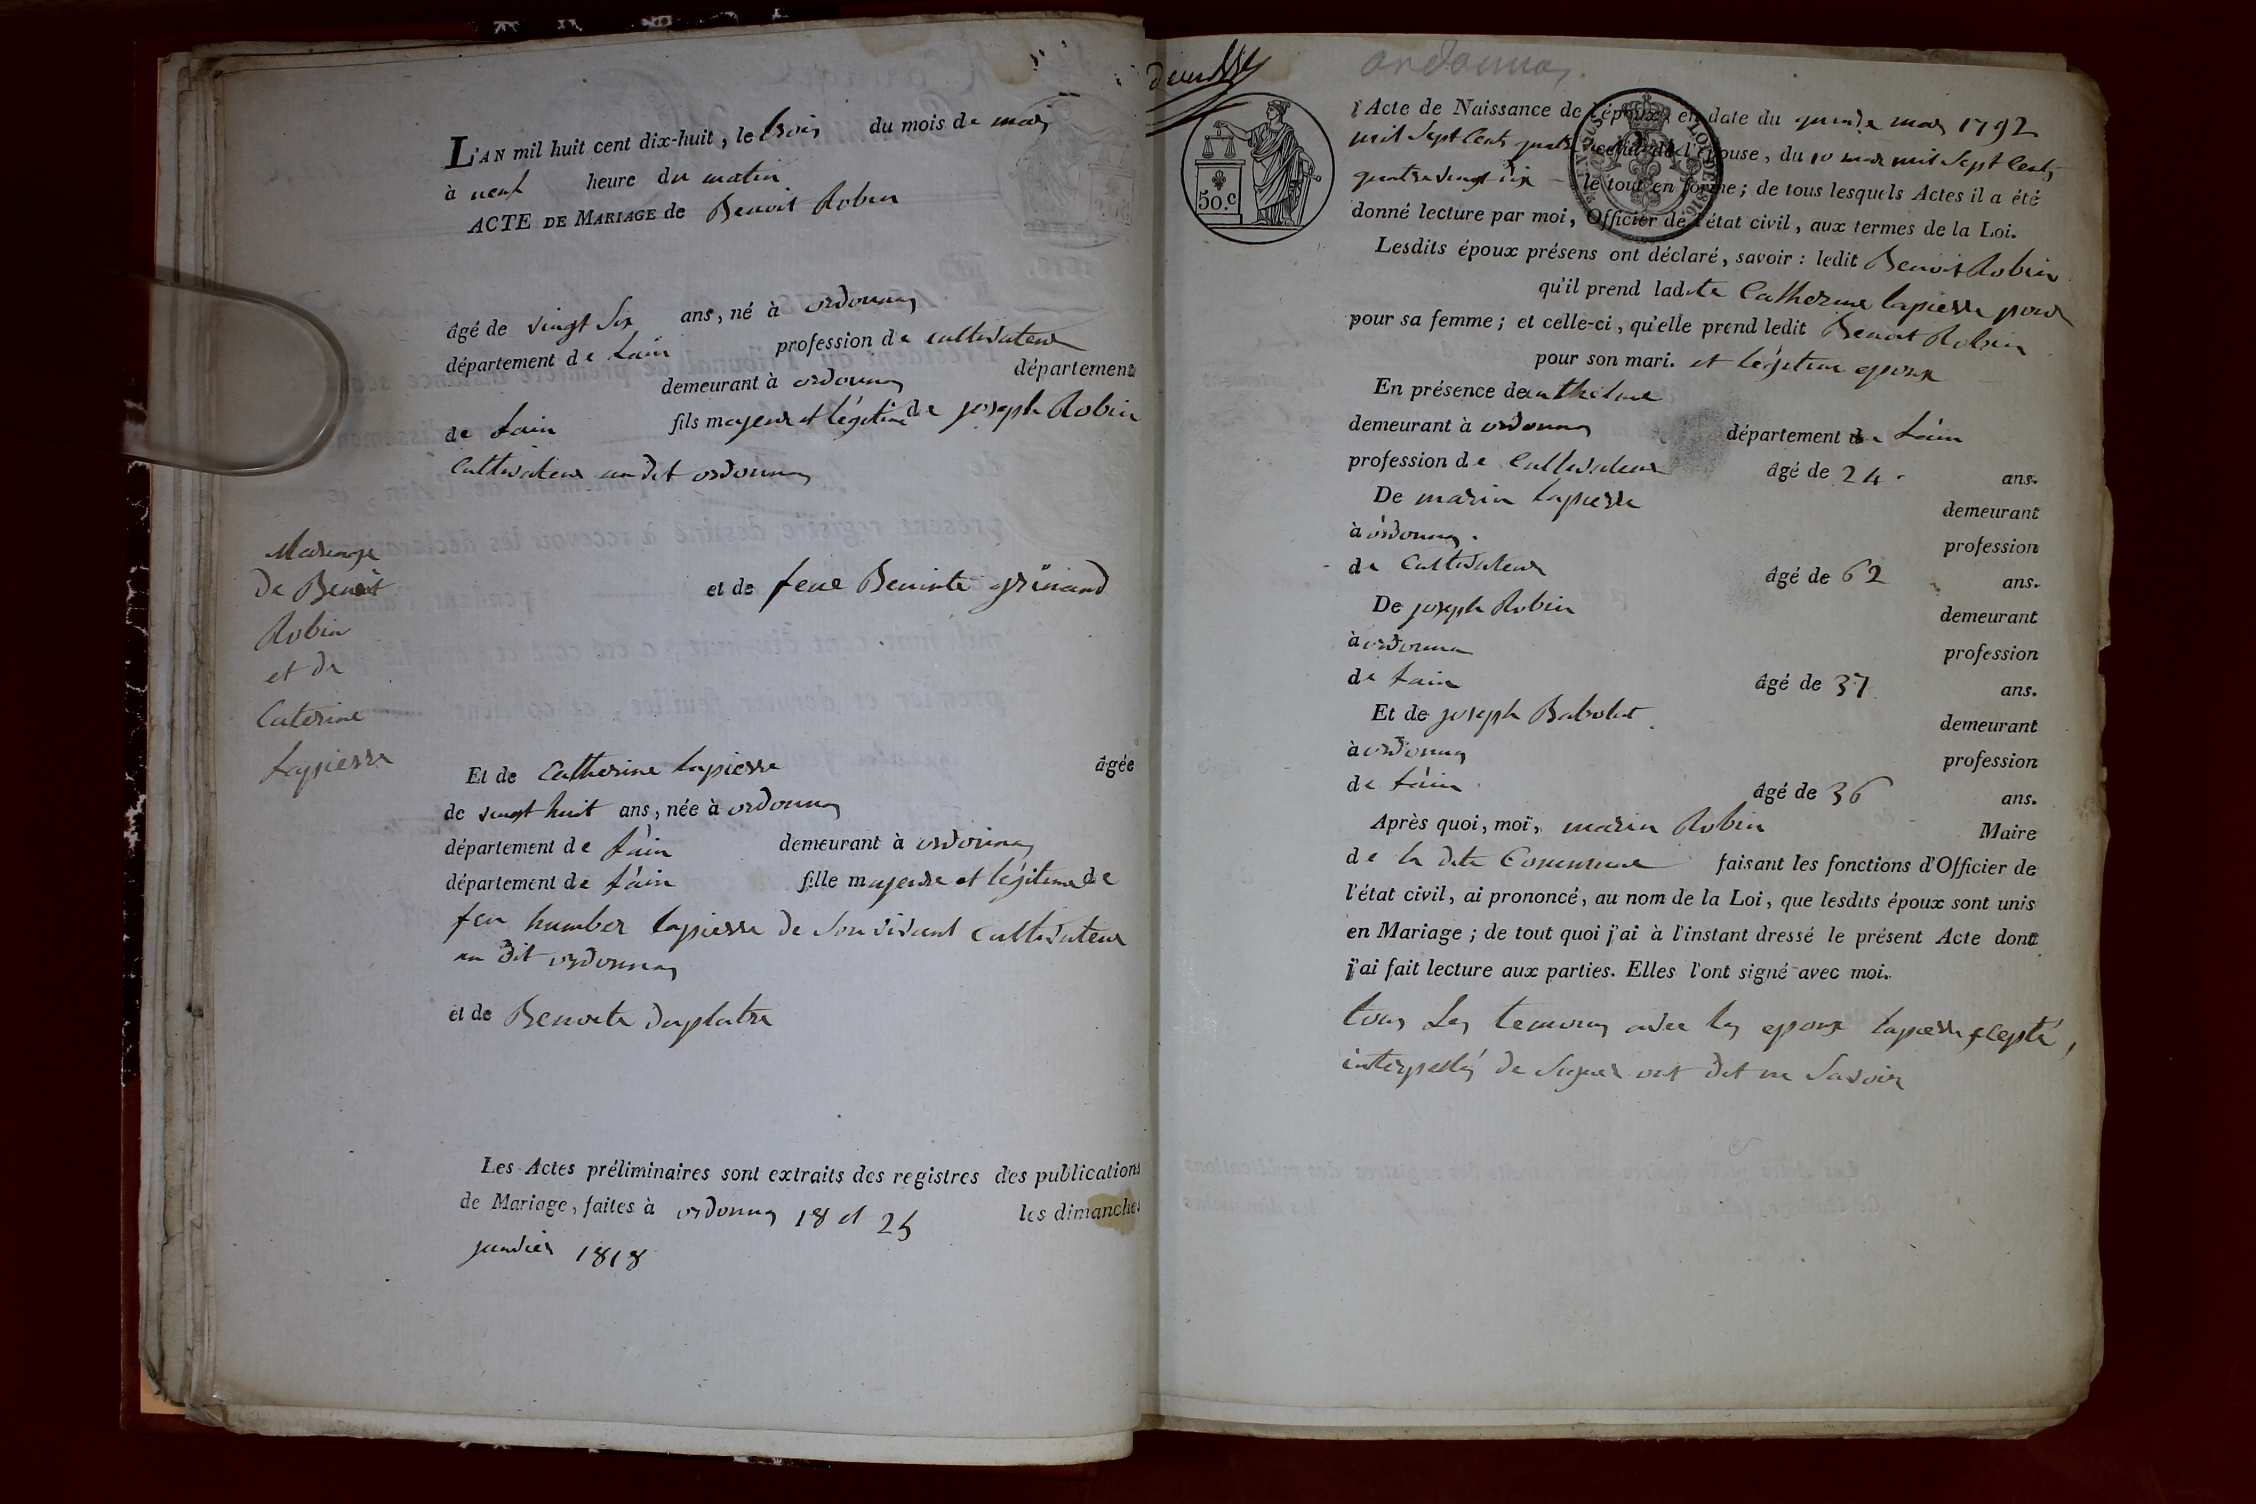 L'AN mil huit cent dix-huit, le trois du mois de mars
à neuf heure du matin
ACTE DE MARIAGE de Benoit Robin
âgé de vingt Six ans, né à ordonnas
département de Lain profession de cultivateur
demeurant à ordonnas département
de Lain fils majeur et légitime de joseph Robin
Cultivateur audit ordonnas
Mariage
de Benoit
Robin
et de
Caterine
Lapierre
et de feue Benoite grinand
Et de Catherine Lapierre âgée
de vingt huit ans, née à ordonnas
département de Lain demeurant à ordonnas
département de Lain fille majeure et légitime de
feu humber Lapierre de Son vivant Cultivateur
au dit ordonnas
et de Benoite Duplatre
Les Actes préliminaires sont extraits des registres des publications
de Mariage, faites à ordonnas 18 et 25 les dimanches
janvier 1818
ordonnas
l'Acte de Naissance de l'époux, en date du quinze mars 1792
mil Sept Cents quatre celui de l'épouse, du 10 mars mil Sept Cents
quatre vingt dix le tout en forme; de tous lesquels Actes il a été
donné lecture par moi, Officier de l'état civil, aux termes de la Loi.
50.c
Lesdits époux présens ont déclaré, savoir : ledit Benoit Robin
qu'il prend ladite Catherine Lapierre pour
pour sa femme; et celle-ci, qu'elle prend ledit Benoit Robin
pour son mari. et légitime epoux
En présence de anthelme
demeurant à ordonnas département de Lain
profession de Cultivateur âgé de 24 ans.
De marin Lapierre demeurant
à ordonnas. profession
de Cultivateur âgé de 62 ans.
De joseph Robin demeurant
à ordonnas profession
de Lain âgé de 37 ans.
Et de joseph Babolat demeurant
à ordonnas profession
de Lain âgé de 36 ans.
Après quoi, moi, marin Robin Maire
de la dite Commune faisant les fonctions d'Officier de
l'état civil, ai prononcé, au nom de la Loi, que lesdits époux sont unis
en Mariage; de tout quoi j'ai à l'instant dressé le présent Acte dont
j'ai fait lecture aux parties. Elles l'ont signé avec moi.
tous Les temoins avec les epoux Lapierre excepté,
interpellés de Signer ont dit ne Savoir